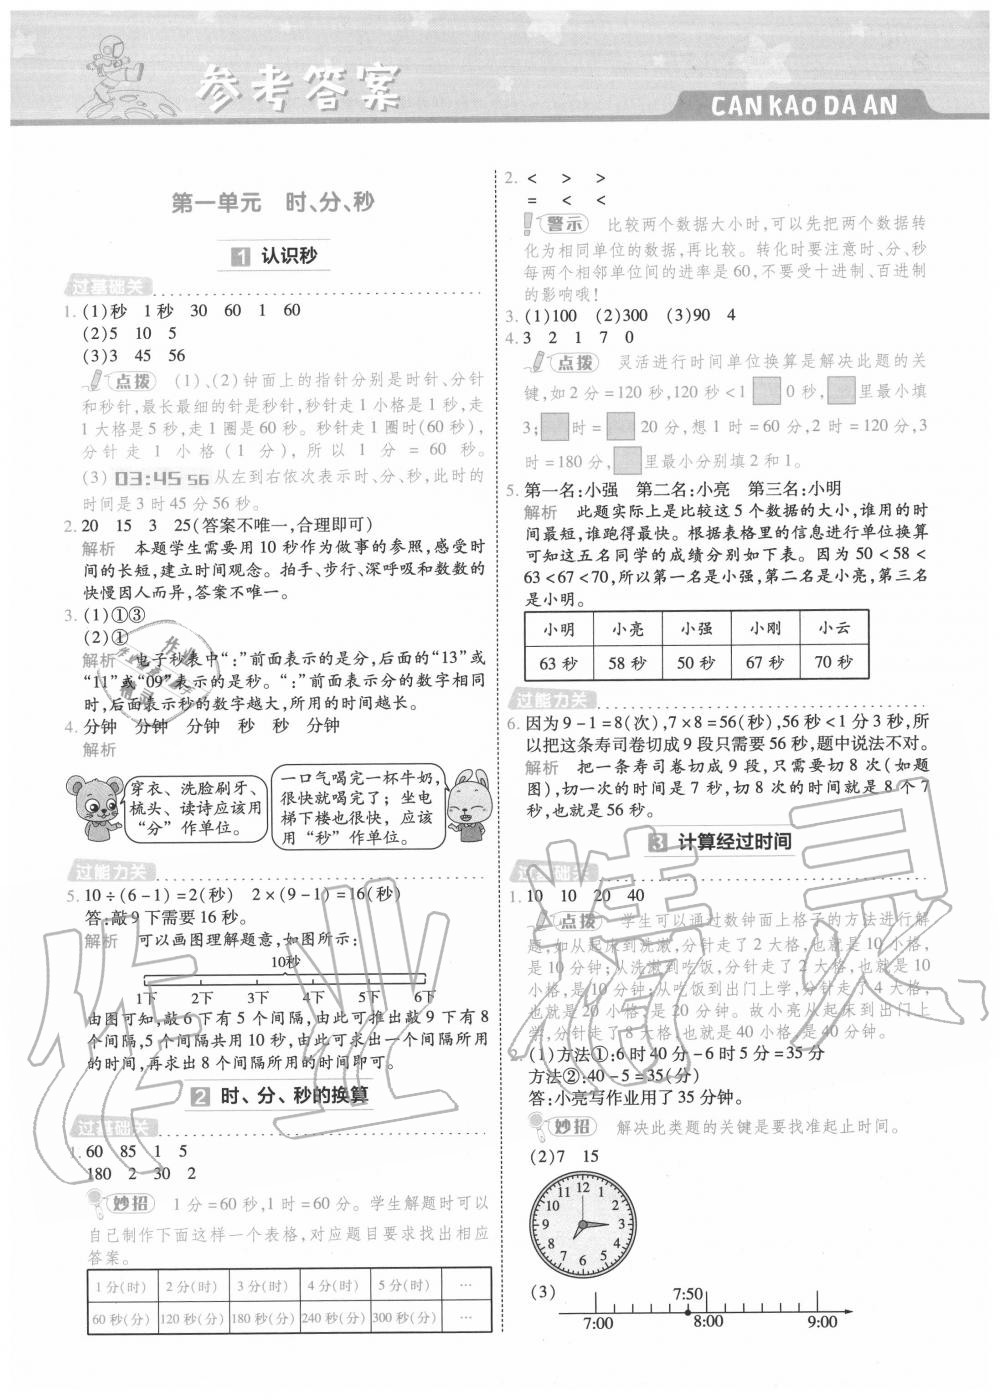 参考答案
CAN KAO DA AN
第一单元 时、分、秒
1 认识秒
过基础关
1. (1)秒 1秒 30 60 1 60
(2)5 10 5
(3)3 45 56
点拨 (1)、(2)钟面上的指针分别是时针、分针
和秒针,最长最细的针是秒针,秒针走1小格是1秒,走
1大格是5秒,走1圈是60秒。秒针走1圈时(60秒),
分针走1小格(1分),所以1分=60秒。
(3) 03:45 56 从左到右依次表示时、分、秒,此时的
时间是3时45分56秒。
2. 20 15 3 25(答案不唯一,合理即可)
解析 本题学生需要用10秒作为做事的参照,感受时
间的长短,建立时间观念。拍手、步行、深呼吸和数数的
快慢因人而异,答案不唯一。
3. (1)①③
(2)①
解析 电子秒表中“:”前面表示的是分,后面的“13”或
“11”或“09”表示的是秒。“:”前面表示分的数字相同
时,后面表示秒的数字越大,所用的时间越长。
4. 分钟 分钟 分钟 秒 秒 分钟
解析
穿衣、洗脸刷牙、
梳头、读诗应该用
“分”作单位。
一口气喝完一杯牛奶,
很快就喝完了；坐电
梯下楼也很快，应该
用“秒”作单位。
过能力关
5. 10÷(6-1)=2(秒) 2×(9-1)=16(秒)
答:敲9下需要16秒。
解析 可以画图理解题意,如图所示:
10秒
1下 2下 3下 4下 5下 6下
由图可知,敲6下有5个间隔,由此可推出敲9下有8
个间隔,5个间隔共用10秒,由此可求出一个间隔所用
的时间,再求出8个间隔所用的时间即可。
2 时、分、秒的换算
过基础关
1. 60 85 1 5
180 2 30 2
妙招 1分=60秒,1时=60分。学生解题时可以
自己制作下面这样一个表格,对应题目要求找出相应
答案。
1分(时) 2分(时) 3分(时) 4分(时) 5分(时) …
60秒(分) 120秒(分) 180秒(分) 240秒(分) 300秒(分) …
2. < > >
= < <
警示 比较两个数据大小时,可以先把两个数据转
化为相同单位的数据,再比较。转化时要注意时、分、秒
每两个相邻单位间的进率是60,不要受十进制、百进制
的影响哦!
3. (1)100 (2)300 (3)90 4
4. 3 2 1 7 0
点拨 灵活进行时间单位换算是解决此题的关
键,如2分=120秒,120秒<1 0秒, 里最小填
3; 时= 20分,想1时=60分,2时=120分,3
时=180分, 里最小分别填2和1。
5. 第一名:小强 第二名:小亮 第三名:小明
解析 此题实际上是比较这5个数据的大小,谁用的时
间最短,谁跑得最快。根据表格里的信息进行单位换算
可知这五名同学的成绩分别如下表。因为50<58<
63<67<70,所以第一名是小强,第二名是小亮,第三名
是小明。
小明 小亮 小强 小刚 小云
63秒 58秒 50秒 67秒 70秒
过能力关
6. 因为9-1=8(次),7×8=56(秒),56秒<1分3秒,所
以把这条寿司卷切成9段只需要56秒,题中说法不对。
解析 把一条寿司卷切成9段,只需要切8次(如题
图),切一次的时间是7秒,切8次的时间就是8个7
秒,也就是56秒。
3 计算经过时间
过基础关
1. 10 10 20 40
点拨 学生可以通过数钟面上格子的方法进行解
题,如从起床到洗漱,分针走了2大格,也就是10小格,
是10分钟;从洗漱到吃饭,分针走了2大格,也就是10
小格,是10分钟;从吃饭到出门上学,分针走了4大格,
也就是20小格,是20分钟。故小亮从起床到出门上
学,分针走了8大格,也就是40小格,是40分钟。
2. (1)方法①:6时40分-6时5分=35分
方法②:40-5=35(分)
答:小亮写作业用了35分钟。
妙招 解决此类题的关键是要找准起止时间。
(2)7 15
12 1 2 3 4 5 6 7 8 9 10 11
(3) 7:50
7:00 8:00 9:00
作业精灵